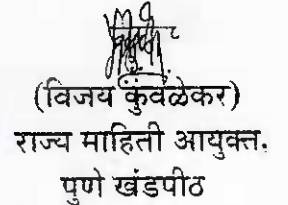 (विजय कुवळेकर)
राज्य माहिती आयुक्त.
पुणे खंडपीठ